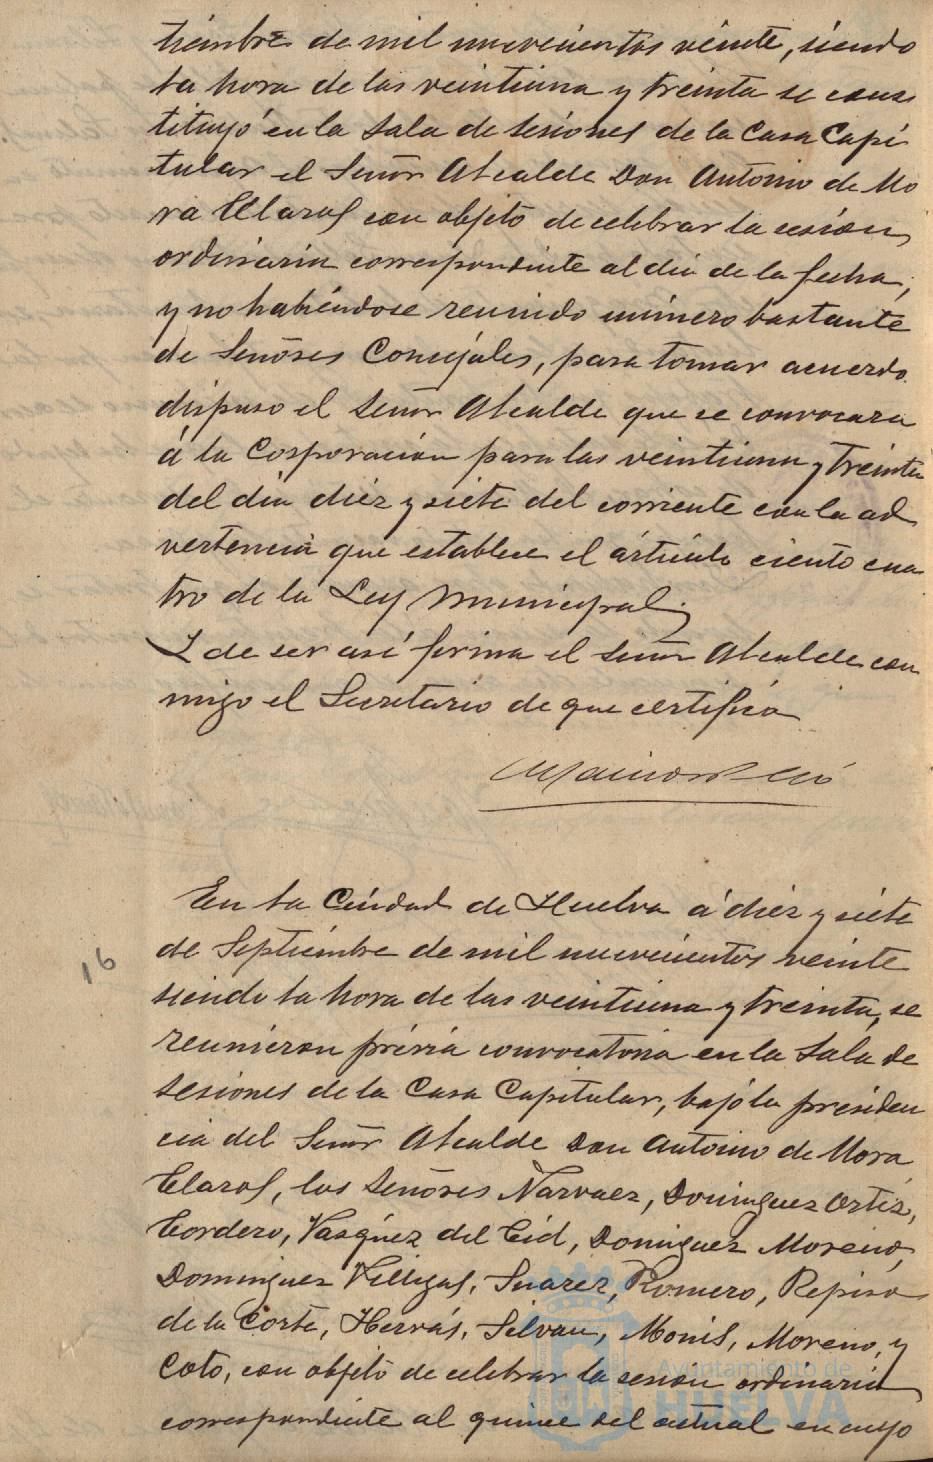 tiémbre de mil nuevecientos véinte, siéndo
la hora de las veintiuna y treinta se cons
tituyó en la Sala de Sesiones de la Casa Capi
tular el Señor Alcalde Don António de Mo
ra Claros con objeto de celebrar la sesión
ordinaria correspondiente al día de la fecha,
y no habiéndose reunido número bastante
de Señores Concejales, para tomar acuerdo
dispuso el Señor Alcalde que se convocara
á la Corporación para las veintiuna y treinta
del día diéz y siete del corriente con la ad
vertencia que establece el artículo ciento cua
tro de la Ley Municipal;
Y de ser así firma el Señor Alcalde con
migo el Secretario de que certifico
En la Ciudad de Huelva á diéz y siéte
de Septiémbre de mil nuevecientos veinte
siendo la hora de las veintiuna y treinta, se
reuniéron prévia convocatoria en la Sala de
Sesiones de la Casa Capitular, bajó la presiden
cia del Señor Alcalde Don Antonio de Mora
Claros, los Señores Narvaez, Dominguez Ortiz,
Cordero, Vasquéz del Cid, Dominguez Moreno,
Dominguez Villegas, Suarez, Romero, Repiso
de la Corte, Hervás, Silvan, Monis, Moreno, y
Coto, con objetó de celebrar la sesion ordinaria
correspondiente al quince del actual en cuyo
16
Ayuntamiento de
HUELVA